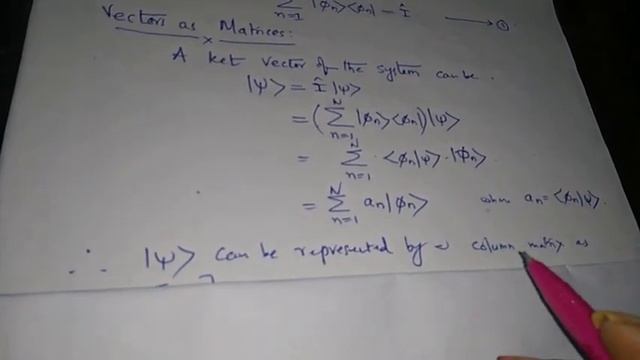 N Σ n=1 |ϕn><ϕn| = Î ⟶ ①
Vectors as Matrices:
A ket vector of the system can be.
|ψ> = Î |ψ>
= (N Σ n=1 |ϕn><ϕn|)|ψ>
= N Σ n=1 · <ϕn|ψ> · |ϕn>
= N Σ n=1 an|ϕn> where an = <ϕn|ψ>.
∴ |ψ> can be represented by a column matrix as